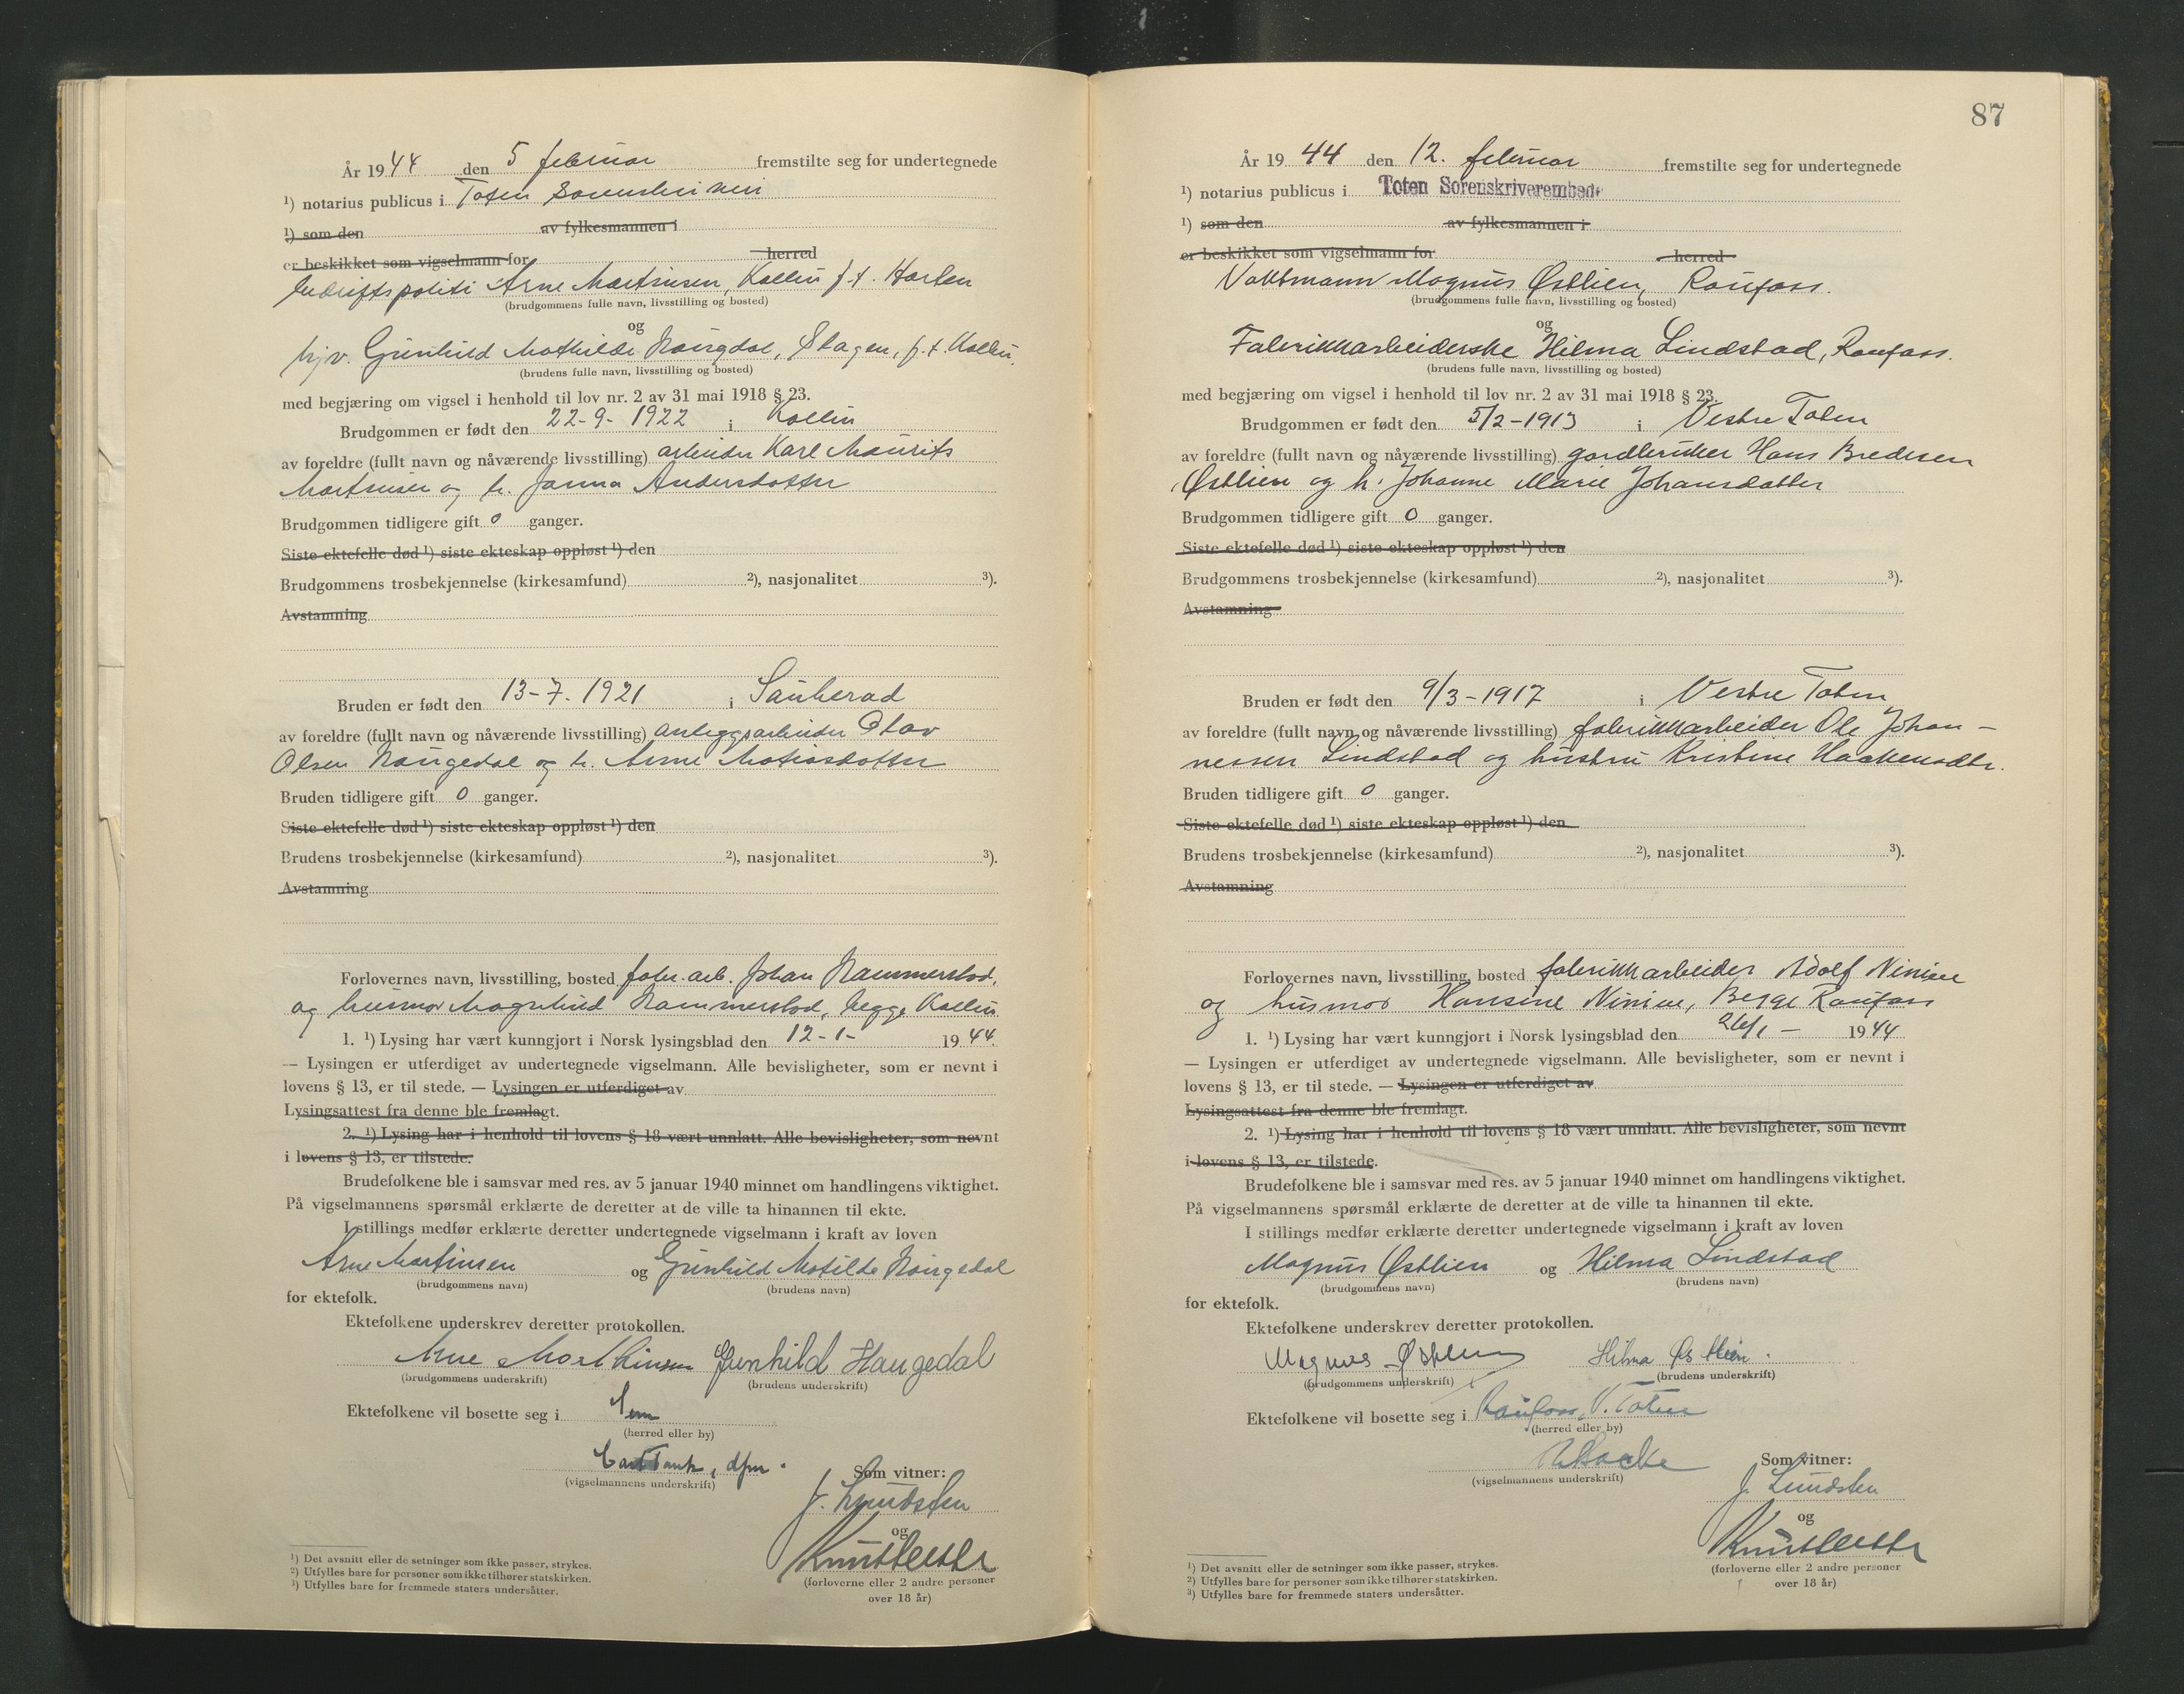 År 1944 den 5 februar fremstilte seg for undertegnede
¹) notarius publicus i Toten
¹) som den av fylkesmannen i
er beskikket som vigselmann for herred
bedriftspoliti Arne Martinsen, Kolbu f.t. Horten
(brudgommens fulle navn, livsstilling og bosted)
og
hjv. Gunhild Mathilde Haugdal, Skagen, f.t. Kolbu.
(brudens fulle navn, livsstilling og bosted)
med begjæring om vigsel i henhold til lov nr. 2 av 31 mai 1918 § 23.
Brudgommen er født den 22-9-1922 i Kolbu
av foreldre (fullt navn og nåværende livsstilling) arbeider Karl Maurits
Martinsen og h. Janna Andersdotter
Brudgommen tidligere gift 0 ganger.
Siste ektefelle død ¹) siste ekteskap oppløst ¹) den
Brudgommens trosbekjennelse (kirkesamfund) ²), nasjonalitet ³).
Avstamning
Bruden er født den 13-7-1921 i Sauherad
av foreldre (fullt navn og nåværende livsstilling) anleggsarbeider Olav
Olsen Haugedal og h. Anne Matiasdotter
Bruden tidligere gift 0 ganger.
Siste ektefelle død ¹) siste ekteskap oppløst ¹) den
Brudens trosbekjennelse (kirkesamfund) ²), nasjonalitet ³).
Avstamning
Forlovernes navn, livsstilling, bosted fabr. arb. Johan Hammerstad,
og husmor Magnhild Hammerstad, begge Kolbu
1. ¹) Lysing har vært kunngjort i Norsk lysingsblad den 12-1- 1944.
— Lysingen er utferdiget av undertegnede vigselmann. Alle bevisligheter, som er nevnt i
lovens § 13, er til stede. — Lysingen er utferdiget av
Lysingsattest fra denne ble fremlagt.
2. ¹) Lysing har i henhold til lovens § 18 vært unnlatt. Alle bevisligheter, som nevnt
i lovens § 13, er tilstede.
Brudefolkene ble i samsvar med res. av 5 januar 1940 minnet om handlingens viktighet.
På vigselmannens spørsmål erklærte de deretter at de ville ta hinannen til ekte.
I stillings medfør erklærte deretter undertegnede vigselmann i kraft av loven
Arne Martinsen og Gunhild Matilde Haugedal
(brudgommens navn) (brudens navn)
for ektefolk.
Ektefolkene underskrev deretter protokollen.
Arne Marthinsen Gunhild Haugedal
(brudgommens underskrift) (brudens underskrift)
Ektefolkene vil bosette seg i Sem
(herred eller by)
(vigselmannens underskrift)
Som vitner:
J. Lundsten
og
(forloverne eller 2 andre personer
over 18 år)
¹) Det avsnitt eller de setninger som ikke passer, strykes.
²) Utfylles bare for personer som ikke tilhører statskirken.
³) Utfylles bare for fremmede staters undersåtter.
87
År 1944 den 12. februar fremstilte seg for undertegnede
¹) notarius publicus i Toten Sorenskriverembede
¹) som den av fylkesmannen i
er beskikket som vigselmann for herred
Vaktmann Magnus Østlien, Raufoss.
(brudgommens fulle navn, livsstilling og bosted)
og
Fabrikkarbeiderske Hilma Lindstad, Raufoss.
(brudens fulle navn, livsstilling og bosted)
med begjæring om vigsel i henhold til lov nr. 2 av 31 mai 1918 § 23.
Brudgommen er født den 5/2-1913 i Vestre Toten
av foreldre (fullt navn og nåværende livsstilling) gardbruker Hans Bredesen
Østlien og h. Johanne Marie Johansdatter
Brudgommen tidligere gift 0 ganger.
Siste ektefelle død ¹) siste ekteskap oppløst ¹) den
Brudgommens trosbekjennelse (kirkesamfund) ²), nasjonalitet ³).
Avstamning
Bruden er født den 9/3-1917 i Vestre Toten
av foreldre (fullt navn og nåværende livsstilling) fabrikkarbeider Ole Johan-
nessen Lindstad og hustru Kristine Haakensdtr.
Bruden tidligere gift 0 ganger.
Siste ektefelle død ¹) siste ekteskap oppløst ¹) den
Brudens trosbekjennelse (kirkesamfund) ²), nasjonalitet ³).
Avstamning
Forlovernes navn, livsstilling, bosted fabrikkarbeider Adolf Ninive
og husmor Hansine Ninive, Begge Raufoss
1. ¹) Lysing har vært kunngjort i Norsk lysingsblad den 26/1- 1944
— Lysingen er utferdiget av undertegnede vigselmann. Alle bevisligheter, som er nevnt i
lovens § 13, er til stede. — Lysingen er utferdiget av
Lysingsattest fra denne ble fremlagt.
2. ¹) Lysing har i henhold til lovens § 18 vært unnlatt. Alle bevisligheter, som nevnt
i lovens § 13, er tilstede.
Brudefolkene ble i samsvar med res. av 5 januar 1940 minnet om handlingens viktighet.
På vigselmannens spørsmål erklærte de deretter at de ville ta hinannen til ekte.
I stillings medfør erklærte deretter undertegnede vigselmann i kraft av loven
Magnus Østlien og Hilma Lindstad
(brudgommens navn) (brudens navn)
for ektefolk.
Ektefolkene underskrev deretter protokollen.
Magnus Østlien Hilma Østlien.
(brudgommens underskrift) (brudens underskrift)
Ektefolkene vil bosette seg i Raufoss, V. Toten
(herred eller by)
(vigselmannens underskrift)
Som vitner:
J. Lundsten
og
(forloverne eller 2 andre personer
over 18 år)
¹) Det avsnitt eller de setninger som ikke passer, strykes.
²) Utfylles bare for personer som ikke tilhører statskirken.
³) Utfylles bare for fremmede staters undersåtter.